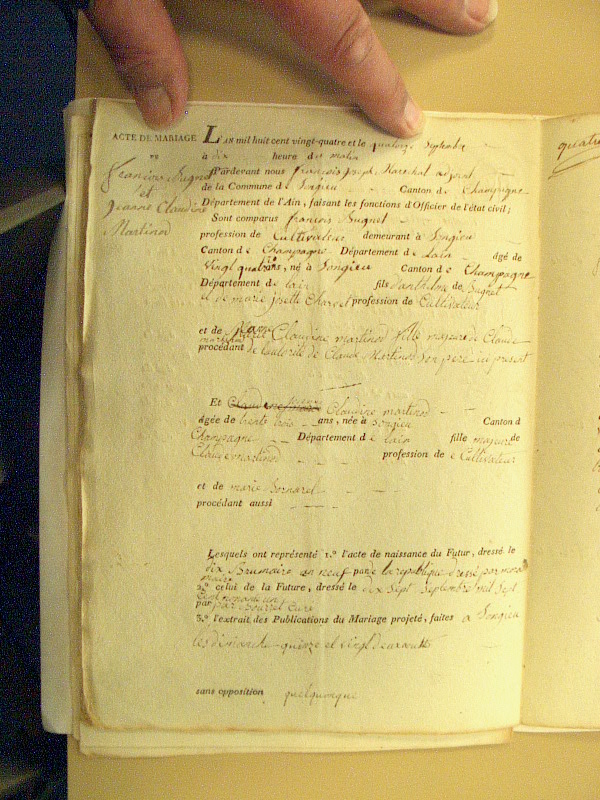 ACTE DE MARIAGE
DE
françois Bugnet
et
Jeanne Claudine
Martinod
L'AN mil huit cent vingt-quatre et le quatorze septembre
à dix heure des matin
Pardevant nous françois Joseph Marechal adjoint
de la Commune de Songieu Canton de Champagne
Département de l'Ain, faisant les fonctions d'Officier de l'état civil;
Sont comparus françois Bugnet
profession de Cultivateur demeurant à Songieu
Canton de Champagne Département de Lain âgé de
Vingt quatre ans, né à Songieu Canton de Champagne
Département de lain fils d'anthelme de Bugnet
et de marie josette Charvet profession de Cultivateur
et de Jeanne Claudine martinod fille majeure de Claude
procédant de lautorité de Claude Martinod son pere ici present
Et Jeanne Claudine martinod
âgée de trente trois ans, née à Songieu Canton d
Champagne Département de lain fille majeure de
Claude martinod profession de Cultivateur
et de marie
procédant aussi
Lesquels ont représenté 1.º l'acte de naissance du Futur, dressé le
dix Brumaire an neuf par de la republique dressé par
2.º celui de la Future, dressé le dix Sept Septembre mil Sept
Cent nonante un
par par Bourret Curé
3.º l'extrait des Publications du Mariage projeté, faites a Songieu
les dimanche quinze et vingt deux
sans opposition quelquonque
quatre